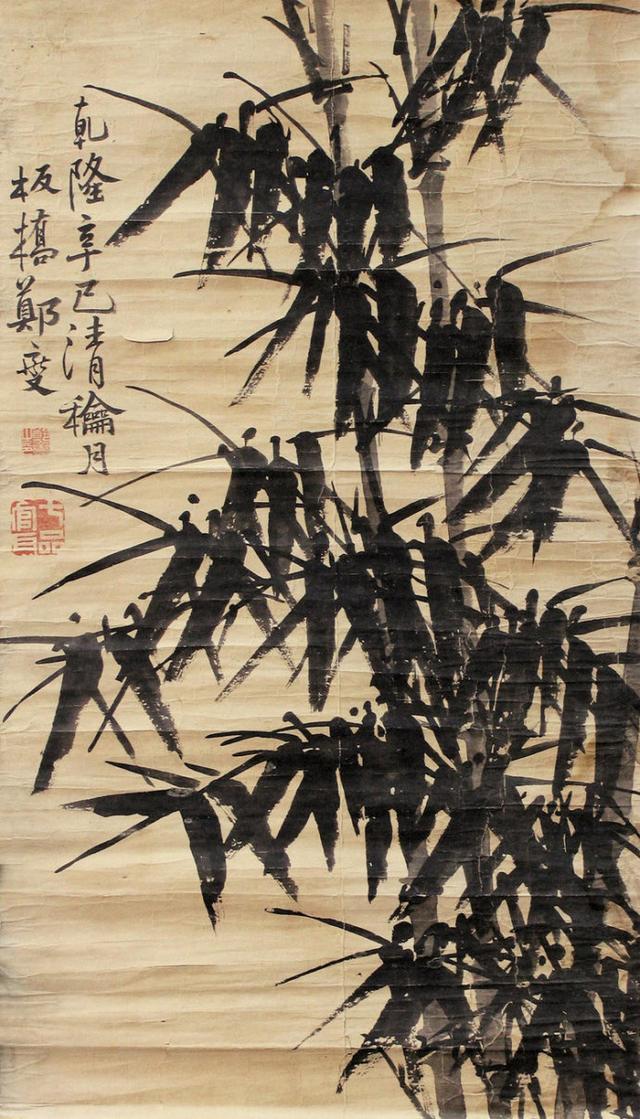 乾隆辛巳清龢月
板橋鄭燮
七品官耳